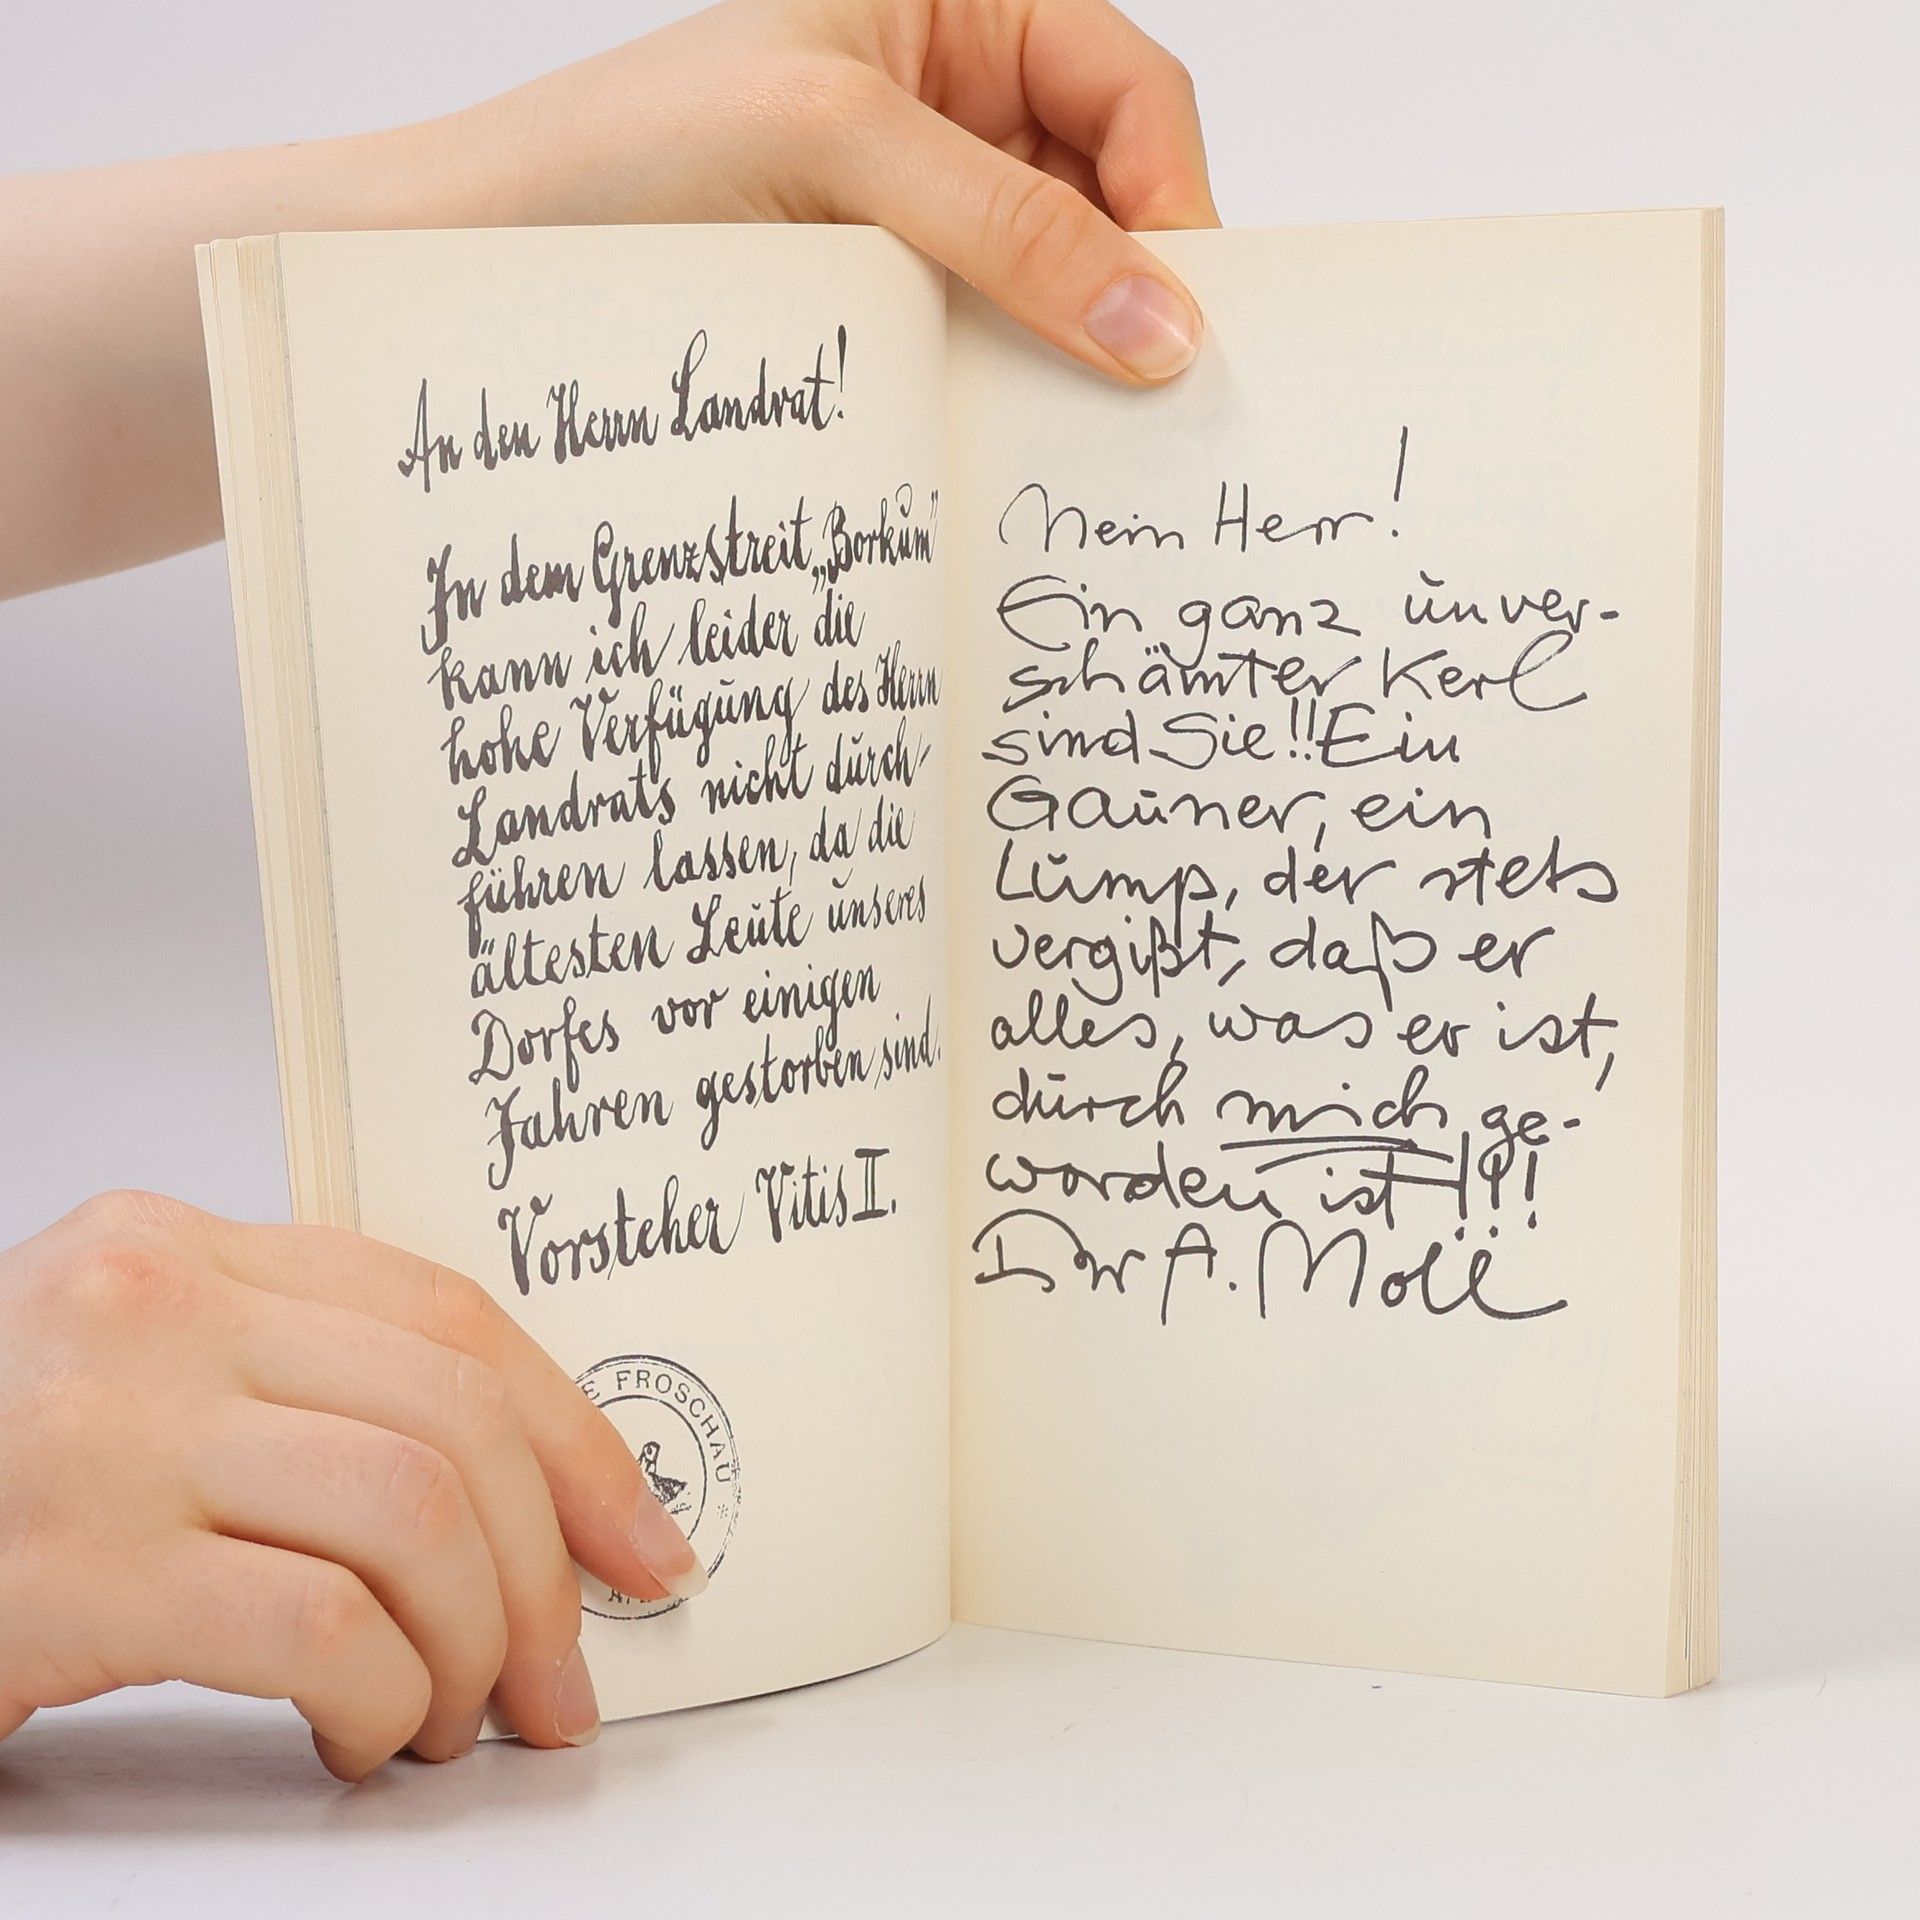 An den Herrn Landrat!
In dem Grenzstreit „Borkum"
kann ich leider die
hohe Verfügung des Herrn
Landrats nicht durch-
führen lassen, da die
ältesten Leute unseres
Dorfes vor einigen
Jahren gestorben sind.
Vorsteher Vitis II.
FROSCHAU *
Mein Herr!
Ein ganz unver-
schämter Kerl
sind Sie!! Ein
Gauner, ein
Lump, der stets
vergißt, daß er
alles, was er ist,
durch mich ge-
worden ist!!!
A. Moll